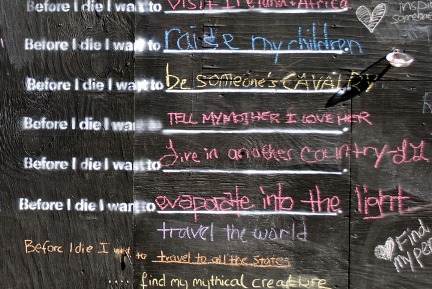 Before I die I want to visit Ireland + Africa
inspi
someone
Before I die I want to raise my children
Before I die I want to be someone's CAVALRY
Before I die I want to TELL MY MOTHER I LOVE HER
Before I die I want to Live in another country
Before I die I want to evaporate into the light
travel the world
Find
my per
Before I die I want to travel to all the States
.... find my mythical creature